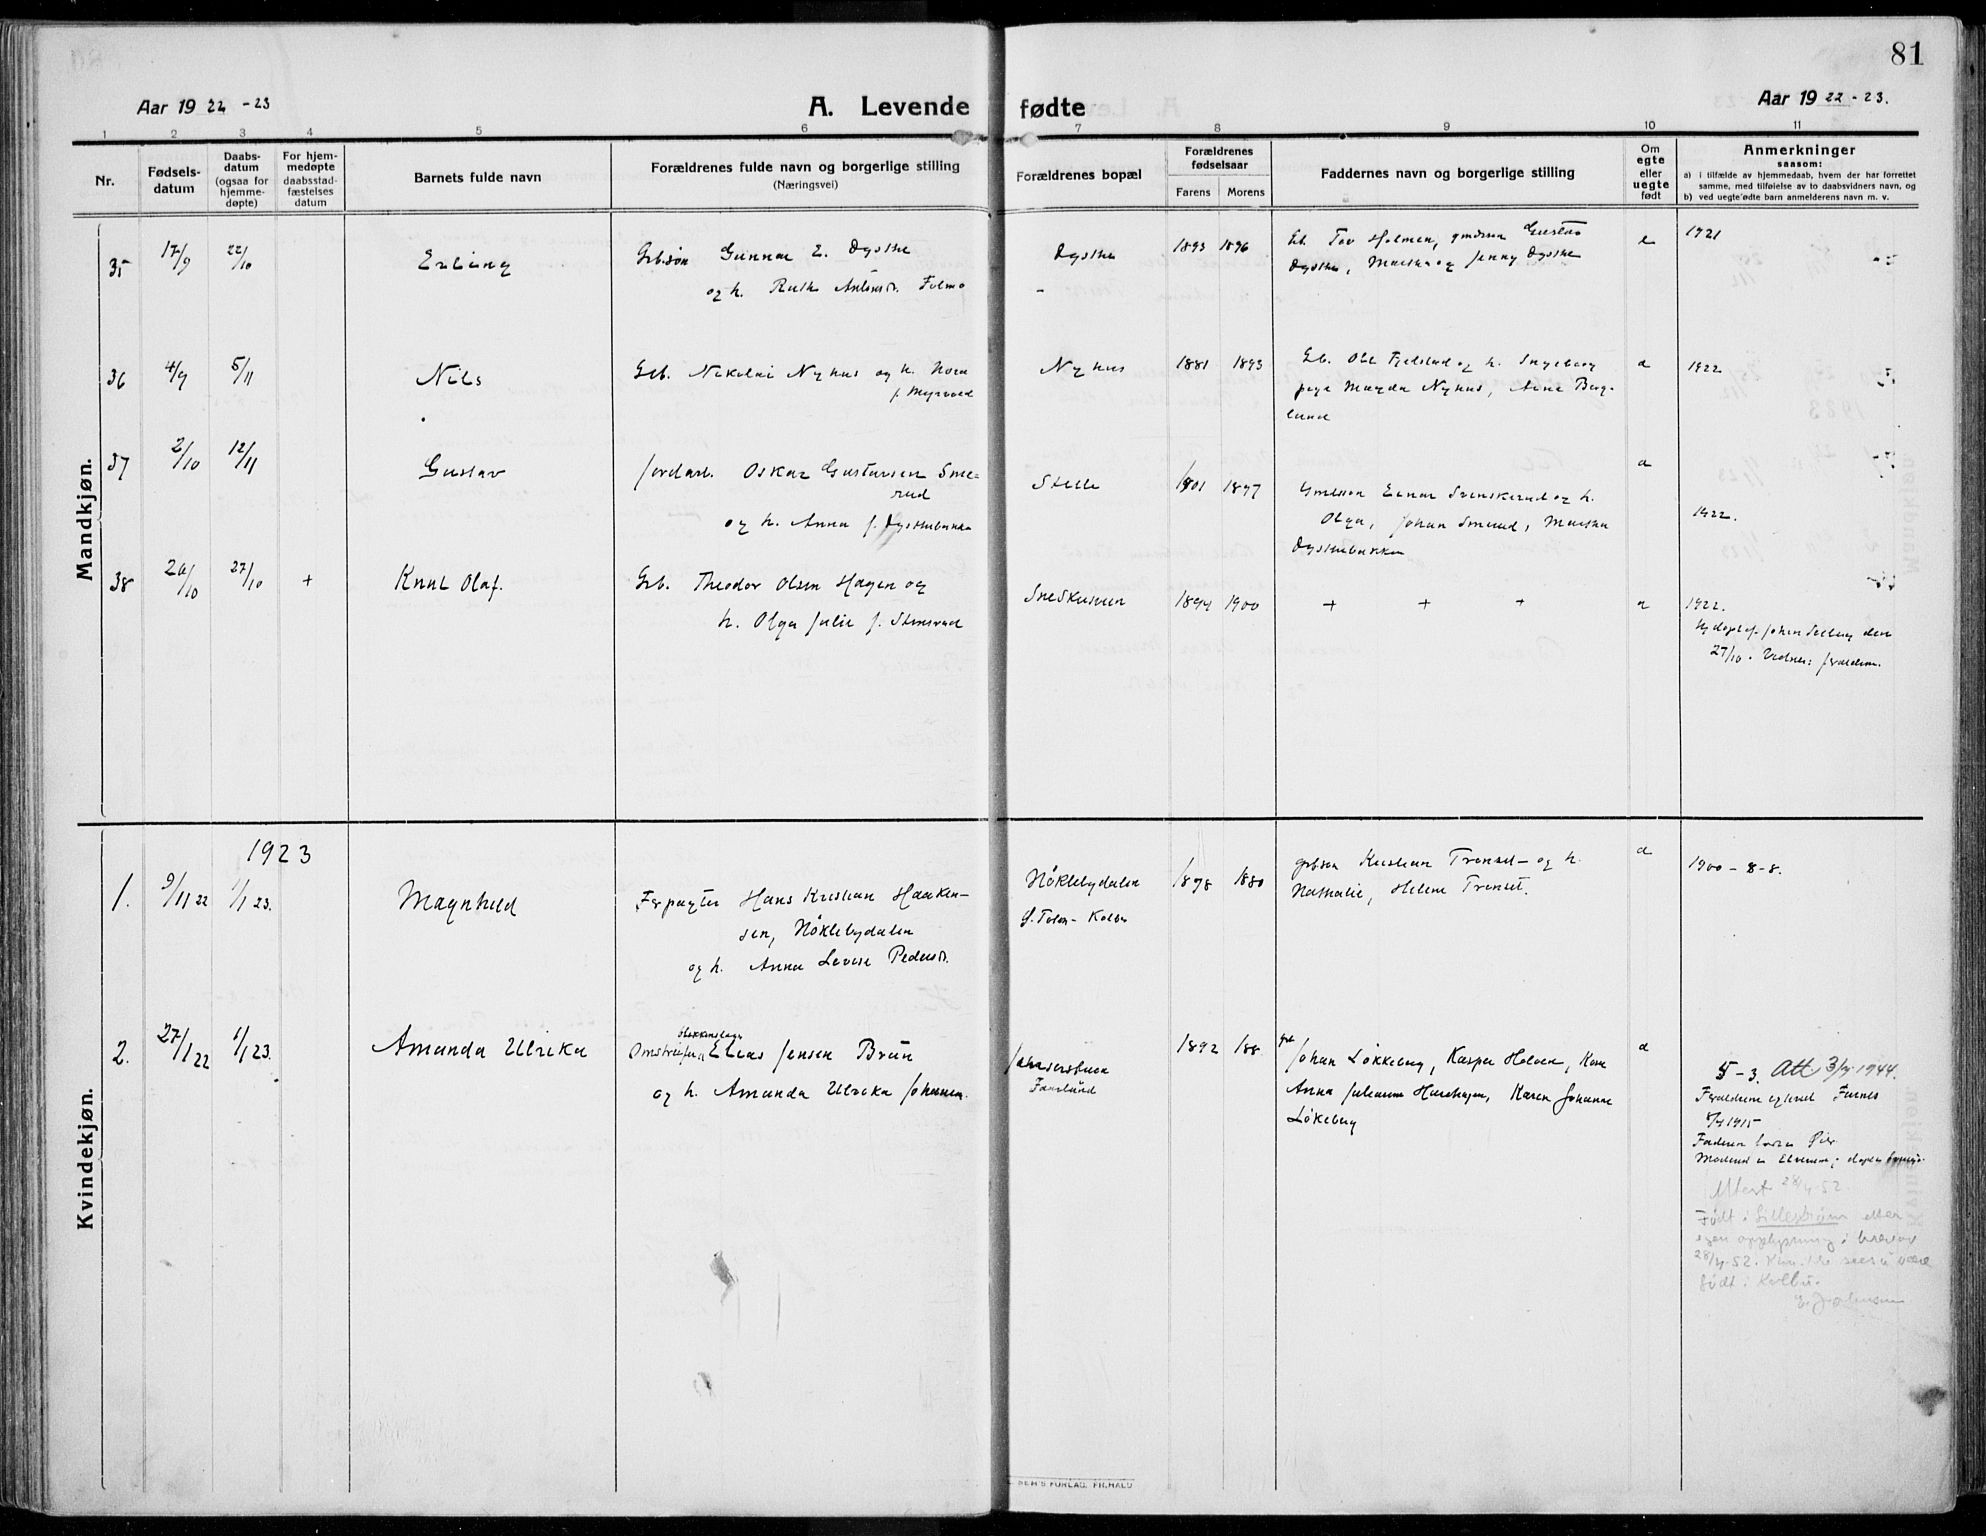 81
Aar 1922-23
A. Levende fødte
Aar 1922-23.
1 2 3 4 5 6 7 8 9 10 11
Nr.
Fødsels-
datum
Daabs-
datum
(ogsaa for
hjemme-
døpte)
For hjem-
medøpte
daabsstad-
fæstelses
datum
Barnets fulde navn
Forældrenes fulde navn og borgerlige stilling
(Næringsvei)
Forældrenes bopæl
Forældrenes
fødselsaar
Farens Morens
Faddernes navn og borgerlige stilling
Om
egte
eller
uegte
født
Anmerkninger
saasom:
a) i tilfælde av hjemmedaab, hvem der har forrettet
samme, med tilføielse av to daabsvidners navn, og
b) ved uegte fødte barn anmelderens navn m. v.
Mandkjøn.
35 17/9 22/10 Erling Gbr.søn Gunnar E. Dysthe
og h. Ruth Antonsdr.
Dysthe 1893 1896
Gb. Tov Holmen, gmdssøn Gustav
Dysthe, Martha og Jenny Dysthe
e 1921
36 4/9 5/11 Nils Gb. Nikolai Nyhus og h. Nora
f. Myrvold
Nyhus 1881 1893
Gb. Ole Fjelstad og h. Ingeborg
pige Magda Nyhus, Arne Berg-
lund
1922
37 2/10 12/11 Gustav Jordarb. Oskar Gustavsen Sme-
rud
og h. Anna f. Dysthebakke
Stelle 1901 1897
Einar Svenskerud og h.
Olga, Johan Smerud, Martha
Dysthebakken
1922.
38 26/10 27/10 + Knut Olaf. Gb. Theodor Olsen Hagen og
h. Olga Julie f. Stensrud
1894 1900
+ + +
1922.
Hj.døpt af Johan Selberg den
27/10. Vidner: forældrene.
Kvindekjøn.
1923
1. 9/11 22 1/1 23. Magnhild Forpagter Hans Kristian Haaken-
sen, Nøklebydalen
og h. Anna Lovise Pedersdr.
Nøklebydalen
Ø. Toten - Kolbu
1898 1880
gbrsøn Kristian Trønset og h.
Nathalie, Helene Trønset.
1900 - 8-8.
2. 27/1 22 1/1 23. Amanda Ulrika
Blikkenslager
Elias Jensen Brun
og h. Amanda Ulrika Johansen.
1892 188
Johan Løkkeberg, Kasper Holven, Kone
Anna Julianne Hurehagen, Karen Johanne
Løkeberg
5-3. Att 3/4 1944.
Forældrene egteviet Furnes
1915
Moderen er Elverum
Attest 28/4-52.
Født i Lillestrøm etter
egen opplysning i brev av
28/4-52.
født i Kolbu.
E. Johansen
SEM'S FORLAG, FR.HALD